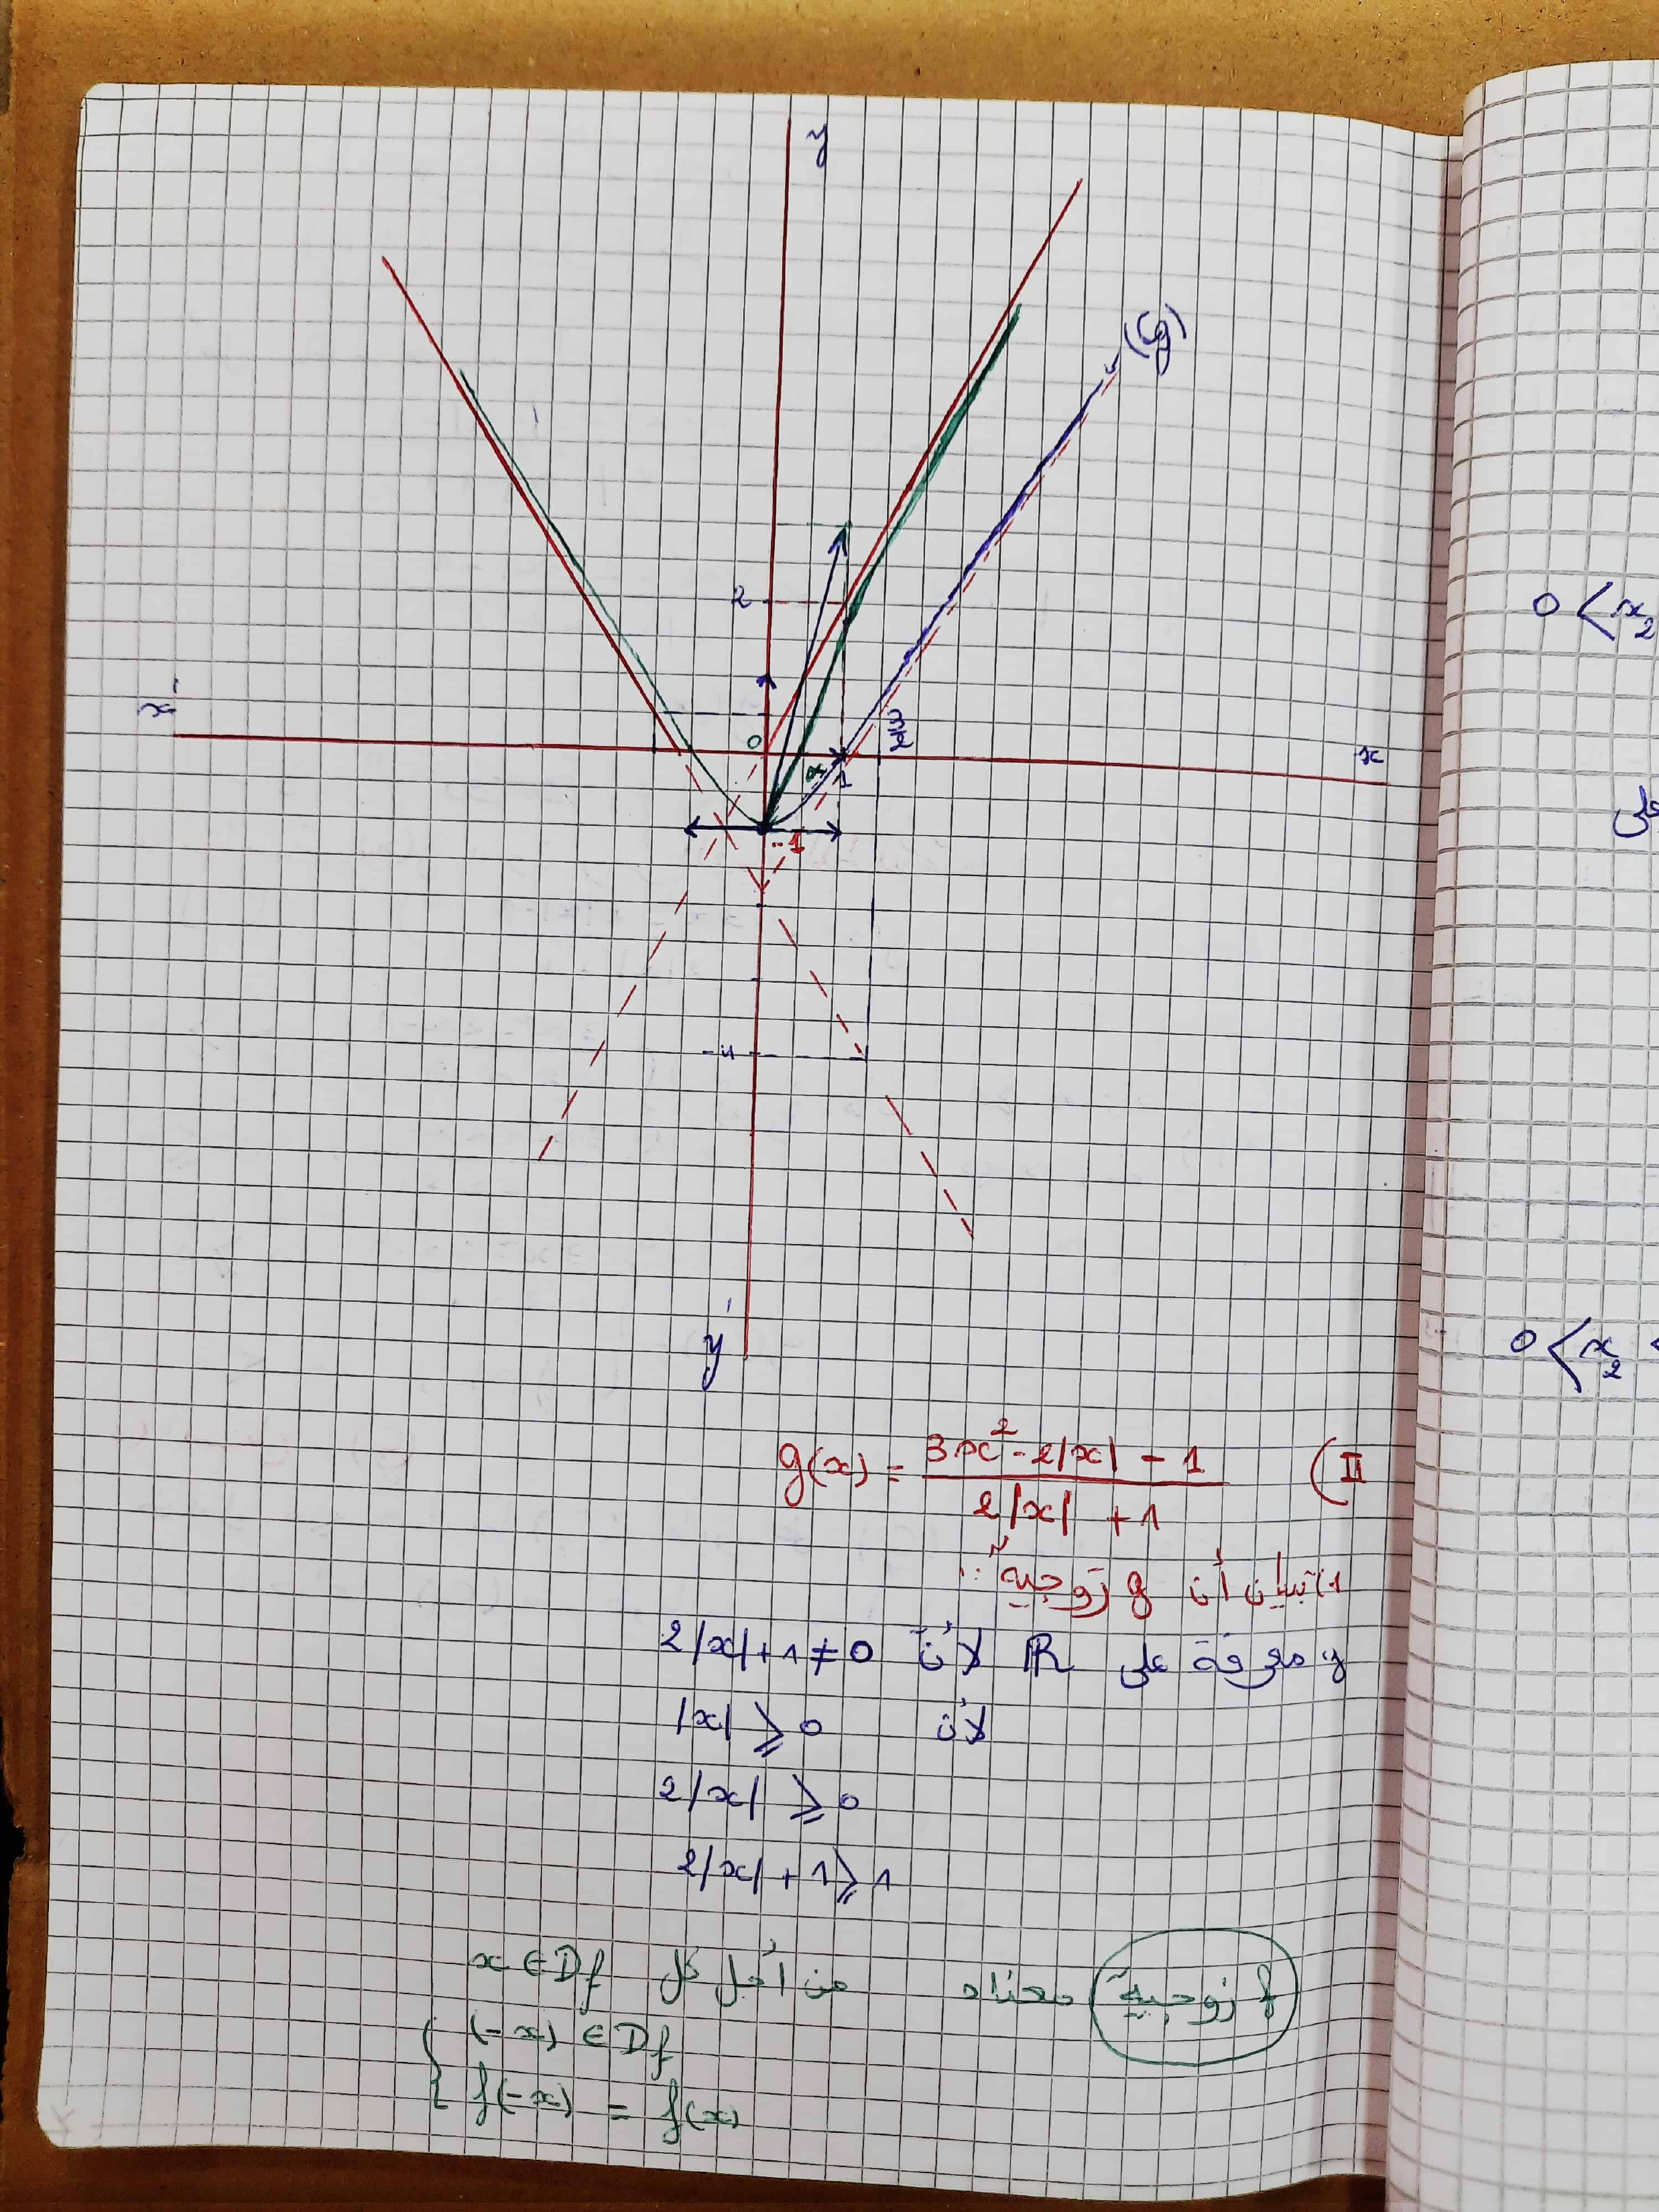 y
(Cg)
2
x'
0
3/2
x
α
1
-1
-4
y'
II) g(x) = (3x² - 2|x| - 1) / (2|x| + 1)
1) تبيان أن g زوجية:
g معرفة على ℝ لأن 2|x| + 1 ≠ 0
لأن |x| ⩾ 0
2|x| ⩾ 0
2|x| + 1 ⩾ 1
f زوجية معناه من أجل كل x ∈ Df
(-x) ∈ Df
f(-x) = f(x)
0 < x₂
على
0 < x₂ <